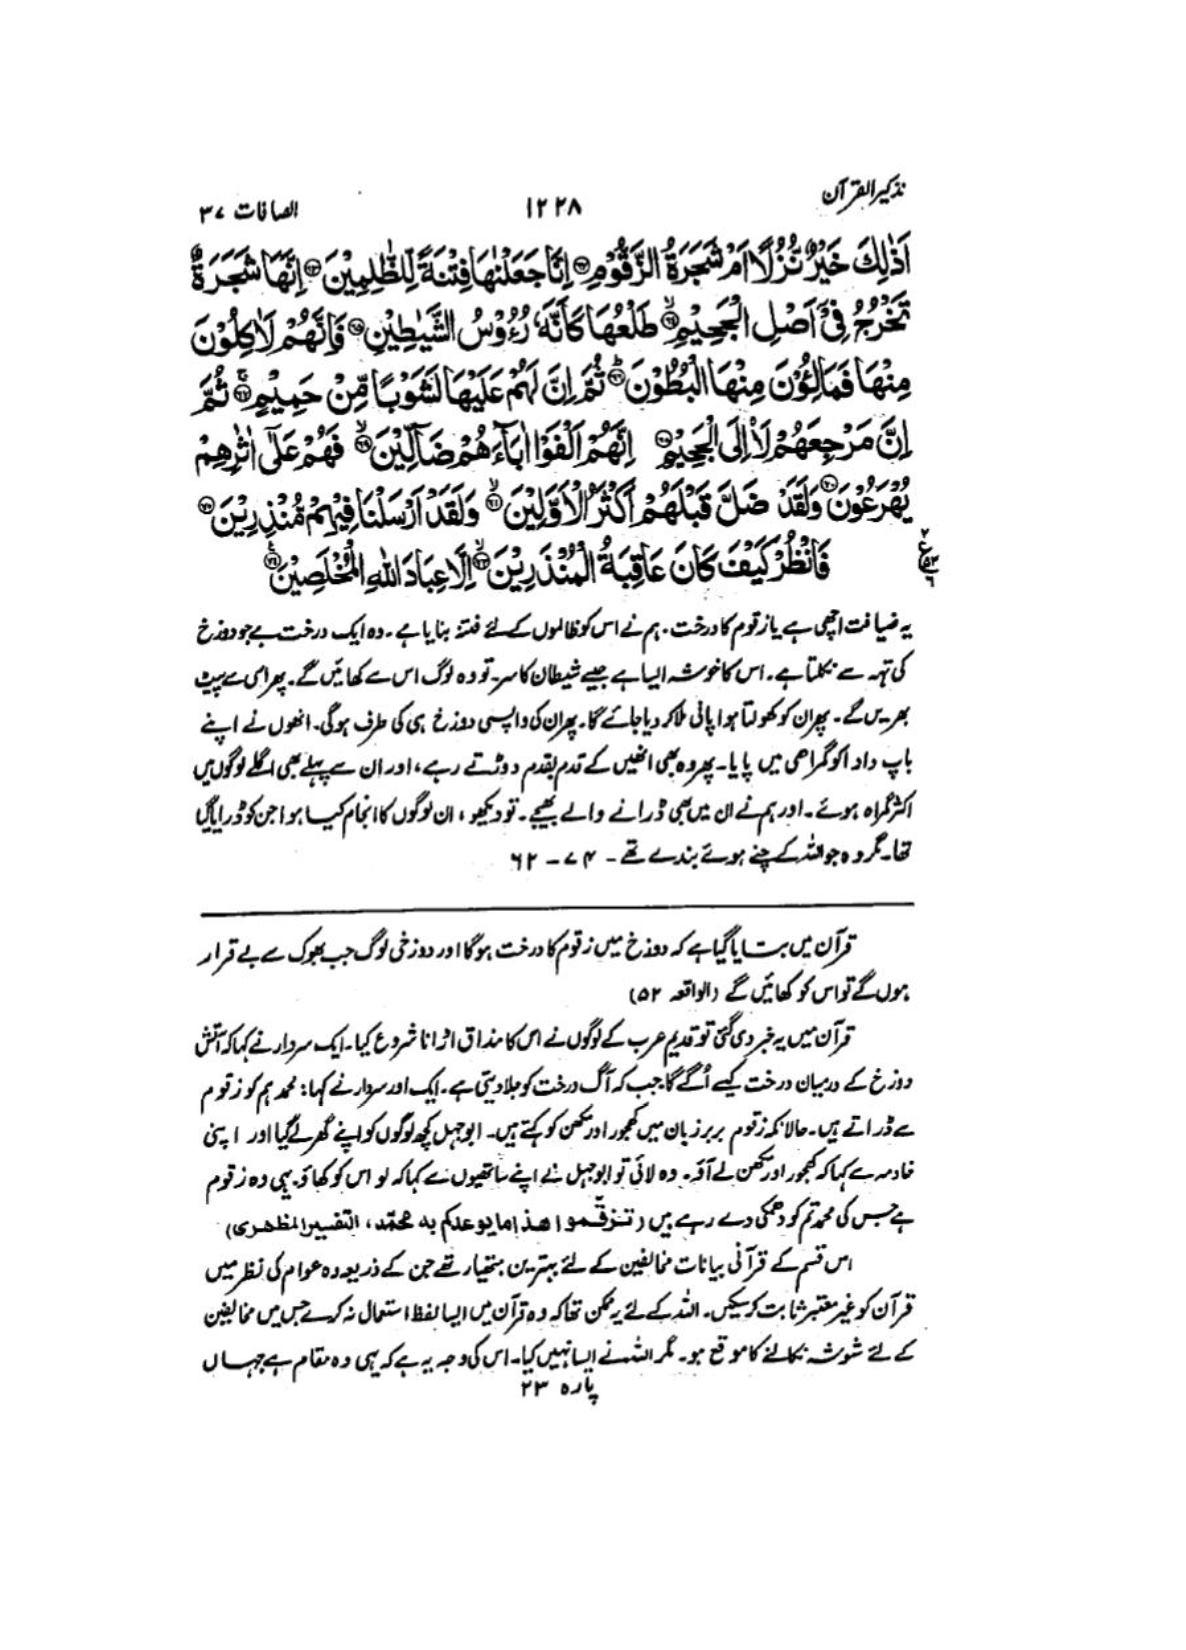 تذکیر القرآن ۱۲۲۸ الصافات ۳۷
اَذٰلِكَ خَيْرٌ نُّزُلًا اَمْ شَجَرَةُ الزَّقُّوْمِ ﴿۶۲﴾ اِنَّا جَعَلْنٰهَا فِتْنَةً لِّلظّٰلِمِيْنَ ﴿۶۳﴾ اِنَّهَا شَجَرَةٌ
تَخْرُجُ فِىْۤ اَصْلِ الْجَحِيْمِ ﴿۶۴﴾ طَلْعُهَا كَاَنَّهٗ رُءُوْسُ الشَّيٰطِيْنِ ﴿۶۵﴾ فَاِنَّهُمْ لَاٰكِلُوْنَ
مِنْهَا فَمَالِئُوْنَ مِنْهَا الْبُطُوْنَ ﴿۶۶﴾ ثُمَّ اِنَّ لَهُمْ عَلَيْهَا لَشَوْبًا مِّنْ حَمِيْمٍ ﴿۶۷﴾ ثُمَّ
اِنَّ مَرْجِعَهُمْ لَا۟اِلَى الْجَحِيْمِ ﴿۶۸﴾ اِنَّهُمْ اَلْفَوْا اٰبَآءَهُمْ ضَآلِّيْنَ ﴿۶۹﴾ فَهُمْ عَلٰٓى اٰثٰرِهِمْ
يُهْرَعُوْنَ ﴿۷۰﴾ وَلَقَدْ ضَلَّ قَبْلَهُمْ اَكْثَرُ الْاَوَّلِيْنَ ﴿۷۱﴾ وَلَقَدْ اَرْسَلْنَا فِيْهِمْ مُّنْذِرِيْنَ ﴿۷۲﴾
فَانْظُرْ كَيْفَ كَانَ عَاقِبَةُ الْمُنْذَرِيْنَ ﴿۷۳﴾ اِلَّا عِبَادَ اللّٰهِ الْمُخْلَصِيْنَ ﴿۷۴﴾
یہ ضیافت اچھی ہے یا زقوم کا درخت۔ ہم نے اس کو ظالموں کے لئے فتنہ بنایا ہے۔ وہ ایک درخت ہے جو دوزخ
کی تہہ سے نکلتا ہے۔ اس کا خوشہ ایسا ہے جیسے شیطان کا سر۔ تو وہ لوگ اس سے کھائیں گے۔ پھر اسی سے پیٹ
بھریں گے۔ پھر ان کو کھولتا ہوا پانی ملا کر دیا جائے گا۔ پھر ان کی واپسی دوزخ ہی کی طرف ہوگی۔ انھوں نے اپنے
باپ دادا کو گمراہی میں پایا۔ پھر وہ بھی انھیں کے قدم بقدم دوڑتے رہے، اور ان سے پہلے بھی اگلے لوگوں میں
اکثر گمراہ ہوئے۔ اور ہم نے ان میں بھی ڈرانے والے بھیجے۔ تو دیکھو، ان لوگوں کا انجام کیا ہوا جن کو ڈرایا گیا
تھا۔ مگر وہ جو اللہ کے چنے ہوئے بندے تھے۔ ۷۴ ۔ ۶۲
قرآن میں بتایا گیا ہے کہ دوزخ میں زقوم کا درخت ہوگا اور دوزخی لوگ جب بھوک سے بے قرار
ہوں گے تو اس کو کھائیں گے (الواقعہ ۵۲)
قرآن میں یہ خبر دی گئی تو قدیم عرب کے لوگوں نے اس کا مذاق اڑانا شروع کیا۔ ایک سردار نے کہا کہ آتش
دوزخ کے درمیان درخت کیسے اُگے گا، جب کہ آگ درخت کو جلا دیتی ہے۔ ایک اور سردار نے کہا: محمد ہم کو زقوم
سے ڈراتے ہیں۔ حالانکہ زقوم بربر زبان میں کھجور اور مکھن کو کہتے ہیں۔ ابوجہل کچھ لوگوں کو اپنے گھر لے گیا اور اپنی
خادمہ سے کہا کہ کھجور اور مکھن لے آؤ۔ وہ لائی تو ابوجہل نے اپنے ساتھیوں سے کہا کہ لو اس کو کھاؤ۔ یہی وہ زقوم
ہے جس کی محمد تم کو دھمکی دے رہے ہیں (تزقّموا ھذا ما یوعدکم بہ محمّد، التفسیر المظہری)
اس قسم کے قرآنی بیانات مخالفین کے لئے بہترین ہتھیار تھے جن کے ذریعہ وہ عوام کی نظر میں
قرآن کو غیر معتبر ثابت کر سکیں۔ اللہ کے لئے یہ ممکن تھا کہ وہ قرآن میں ایسا لفظ استعمال نہ کرے جس میں مخالفین
کے لئے شوشہ نکالنے کا موقع ہو۔ مگر اللہ نے ایسا نہیں کیا۔ اس کی وجہ یہ ہے کہ یہی وہ مقام ہے جہاں
پارہ ۲۳